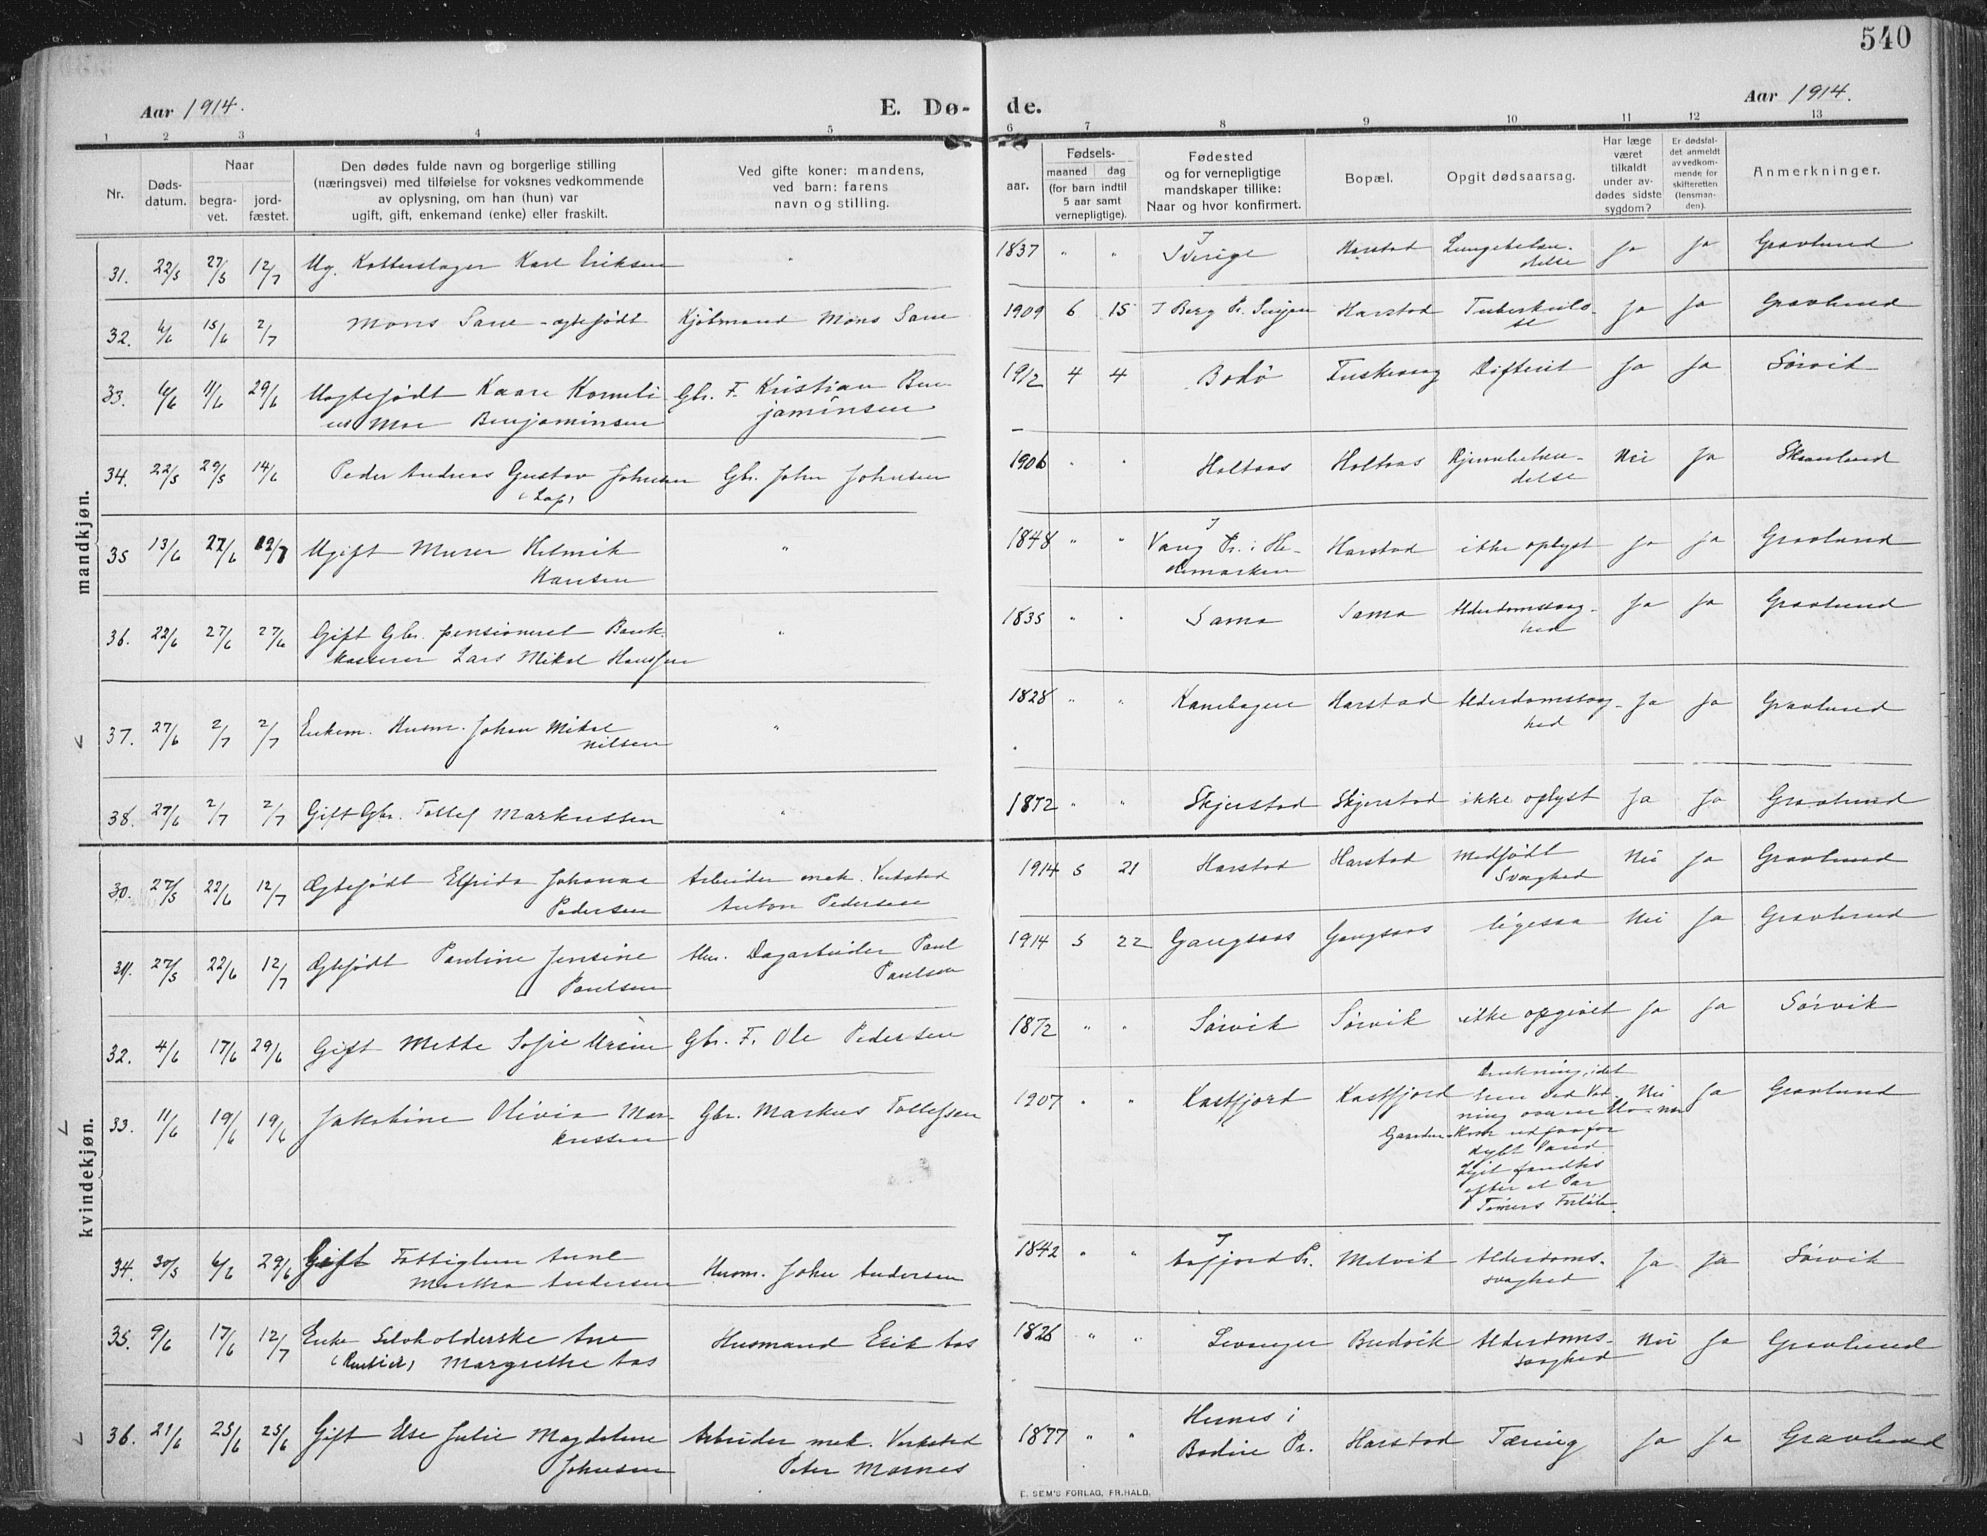 540
Aar 1914.
E. Dø-
de.
Aar 1914.
1 2 3 4 5 6 7 8 9 10 11 12 13
Nr.
Døds-
datum.
Naar
begra-
vet.
jord-
fæstet.
Den dødes fulde navn og borgerlige stilling
(næringsvei) med tilføielse for voksnes vedkommende
av oplysning, om han (hun) var
ugift, gift, enkemand (enke) eller fraskilt.
Ved gifte koner: mandens,
ved barn: farens
navn og stilling.
Fødsels-
aar.
maaned dag
(for barn indtil
5 aar samt
vernepligtige).
Fødested
og for vernepligtige
mandskaper tillike:
Naar og hvor konfirmert.
Bopæl.
Opgit dødsaarsag.
Har læge
været
tilkaldt
under av-
dødes sidste
sygdom?
Er dødsfal-
det anmeldt
av vedkom-
mende for
skifteretten
(lensman-
den).
Anmerkninger.
mandkjøn.
31. 22/5 27/5 12/7 Ug. Kobberslager Karl Eriksen " 1837 " " Sverige Harstad Lungebetæn- Ja Ja Gravlund
delse
32. 4/6 15/6 2/7 Mons Sane - ægtefødt Kjøbmand Mons Sane 1909 6 15 I Berg Pr. Senjen Harstad Tuberkulo- Ja Ja Gravlund
se
33. 6/6 11/6 29/6 Uægtefødt Kaare Korneli Gbr. F. Kristian Ben- 1912 4 4 Bodø Fuskevaag Difterit Ja Ja Sørvik
us Moe Benjaminsen jaminsen
34. 22/5 29/5 14/6 Peder Andreas Gustav Johnsen Gbr. John Johnsen 1906 " " Holtaas Holtaas Hjernebetæn- Nei Ja Skaanland
(Lap) delse
35 13/6 27/6 12/7 Ugift Murer Helmik " 1848 " " I Vang Pr. i He- Harstad ikke oplyst Ja Ja Gravlund
Hansen demarken
36. 22/6 27/6 27/6 Gift Gbr. pensioneret Bank- " 1835 " " Sama Sama Alderdomssvag- Ja Ja Gravlund
kasserer Lars Mikal Hanssen hed
37. 27/6 2/7 2/7 Enkem. Husm. Johan Mikal " 1828 " " Kanebogen Harstad Alderdomssvag- Ja Ja Gravlund
Nilsen hed
38. 27/6 2/7 2/7 Gift Gbr. Tollef Markussen " 1872 " " Skjerstad Skjerstad ikke oplyst Ja Ja Gravlund
kvindekjøn.
30. 27/5 22/6 12/7 Ægtefødt Elfrida Johanna Arbeider mek. Verksted 1914 5 21 Harstad Harstad Medfødt Nei Ja Gravlund
Pedersen Anton Pedersen Svaghed
31. 27/5 22/6 12/7 Ægtefødt Pauline Jensine Hus. Dagarbeider Paul 1914 5 22 Gangsaas Gangsaas ligesaa Nei Ja Gravlund
Paulsen Paulsen
32. 4/6 17/6 29/6 Gift Mette Sofie Ursin Gbr. F. Ole Pedersen 1872 " " Sørvik Sørvik ikke opgivet Ja Ja Sørvik
33. 11/6 19/6 19/6 Jakobine Olivia Mar- Gbr. Markus Tollefsen 1907 " " Kastfjord Kastfjord Drukning, idet Nei Ja Gravlund
kussen
hun ved Vad
ning over en
kom ud for for
dybt Vand.
Liget fandtes
efter et Par
Timers Forløb.
34. 30/5 6/6 29/6 Gift Fattiglem Anne Husm. John Andersen 1842 " " I Aafjord Pr. Melvik Alderdoms- Ja Ja Sørvik
Martha Andersen svaghed
35. 9/6 17/6 12/7 Enke Selvholderske Ane Husmand Erik Aas 1826 " " Levanger Bredvik Alderdoms- Nei Ja Gravlund
(Rentier) Margrethe Aas svaghed
36. 21/6 25/6 25/6 Gift Else Julie Magdalene Arbeider mek. Verksted 1877 " " Hernes i Harstad Tæring Ja Ja Gravlund
Johnsen Peter Mornes Bodin Pr.
E. SEM'S FORLAG, FR.HALD.